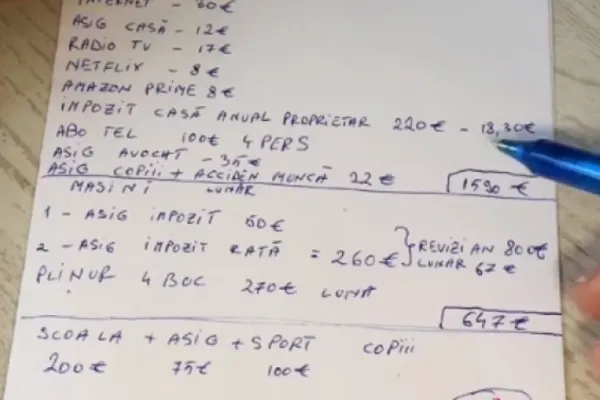 INTERNET - 30€
ASIG CASĂ - 12€
RADIO TV - 17€
NETFLIX - 8€
AMAZON PRIME 8€
IMPOZIT CASĂ ANUAL PROPRIETAR 220€ - 18,30€
ABO TEL 100€ 4 PERS
ASIG AVOCAT - 35€
ASIG COPIII + ACCIDEN MUNCĂ 22€ 1590€
MASINI LUNAR
1 - ASIG IMPOZIT 50€
2 - ASIG IMPOZIT RATĂ = 260€ REVIZI AN 800€
LUNAR 67€
PLINUR 4 BUC 270€ LUNA
647€
SCOALA + ASIG + SPORT COPIII
200€ 75€ 100€